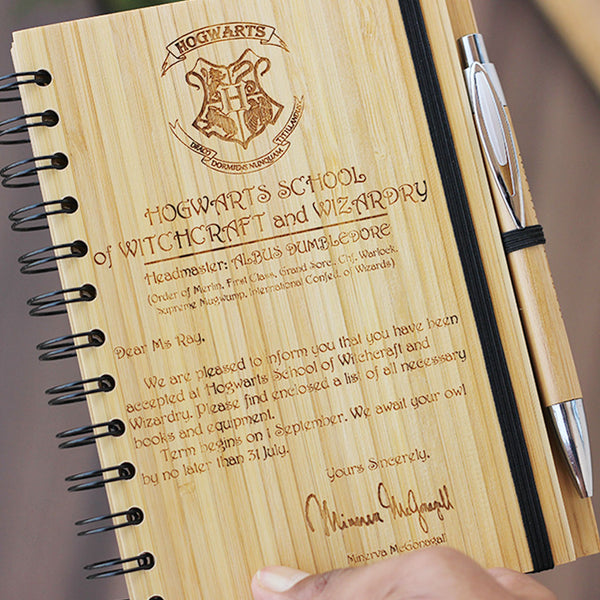 HOGWARTS
H
DRACO DORMIENS NUNQUAM TITILLANDUS
HOGWARTS SCHOOL
of WITCHCRAFT and WIZARDRY
Headmaster: ALBUS DUMBLEDORE
(Order of Merlin, First Class, Grand Sorc., Chf. Warlock,
Supreme Mugwump, International Confed. of Wizards)
Dear Ms Ray,
We are pleased to inform you that you have been
accepted at Hogwarts School of Witchcraft and
Wizardry. Please find enclosed a list of all necessary
books and equipment.
Term begins on 1 September. We await your owl
by no later than 31 July.
Yours Sincerely,
Minerva McGonagall
Minerva McGonagall